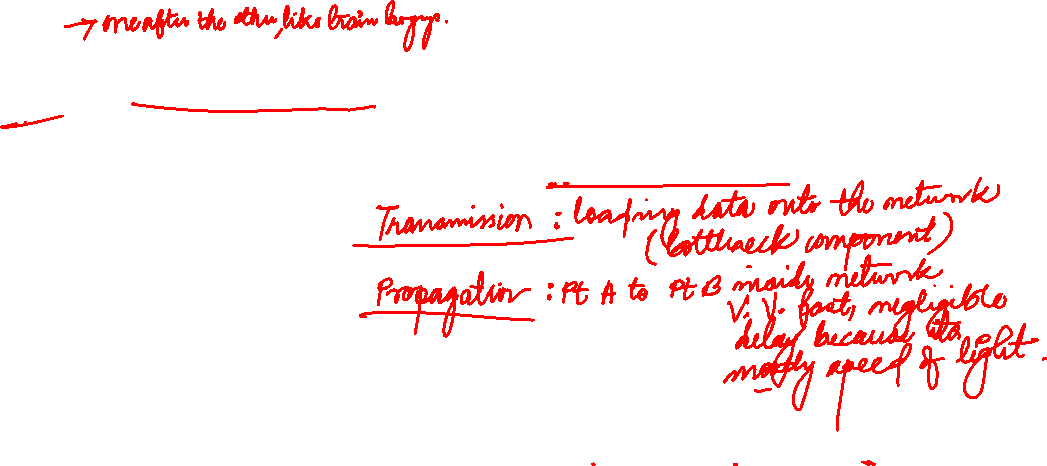 → one after the other, like train bogeys.
Transmission : loading data onto the network
(bottleneck component)
Propagation : Pt A to Pt B inside network
V. V. fast, negligible
delay because its
mostly speed of light.